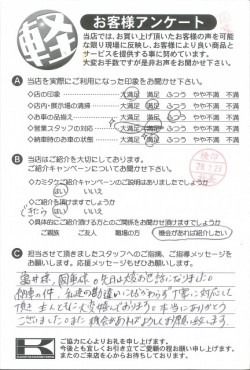 軽
お客様アンケート
当店では、お買い上げ頂いたお客様の声を可能
な限り現場に反映し、お客様により良い商品と
サービスを提供する事に努めています。
大変お手数ですが是非お声をお聞かせ下さい。
A 当店を実際にご利用になった印象をお聞かせ下さい。
◇店の印象 大満足 満足 ふつう やや不満 不満
◇店内・展示場の清掃 大満足 満足 ふつう やや不満 不満
◇お車の品揃え 大満足 満足 ふつう やや不満 不満
◇営業スタッフの対応 大満足 満足 ふつう やや不満 不満
◇納車時のお車の状態 大満足 満足 ふつう やや不満 不満
B 当店はご紹介を大切にしております。
ご紹介キャンペーンについてお聞かせ下さい
◇カミタケご紹介キャンペーンのご説明はありましたでしょうか
はい いいえ
◇ご紹介頂けますでしょうか
はい いいえ
◇具体的にご紹介頂ける方とのご関係をお聞かせ頂けますでしょうか
ご親族 ご友人 職場の方 機会があれば紹介したい
C 担当させて頂きましたスタッフへのご指摘、ご指導メッセージを
お願いします。応援メッセージもぜひお願いします。
先日は大変お世話になりました。
納車の件、私達の勘違いにもかかわらず丁寧に対応して
頂き
本当にありがとう
ございました。また機会があればよろしくお願い致します。
K
ご協力に心よりお礼を申し上げます。
今後とも宜しくお引き立てご愛顧の程お願い申し上げます。
またのご来店を心からお待ちしております。